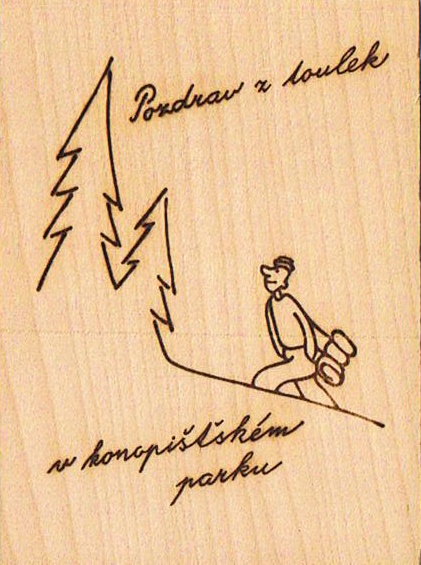 Pozdrav z toulek
v konopišťském
parku